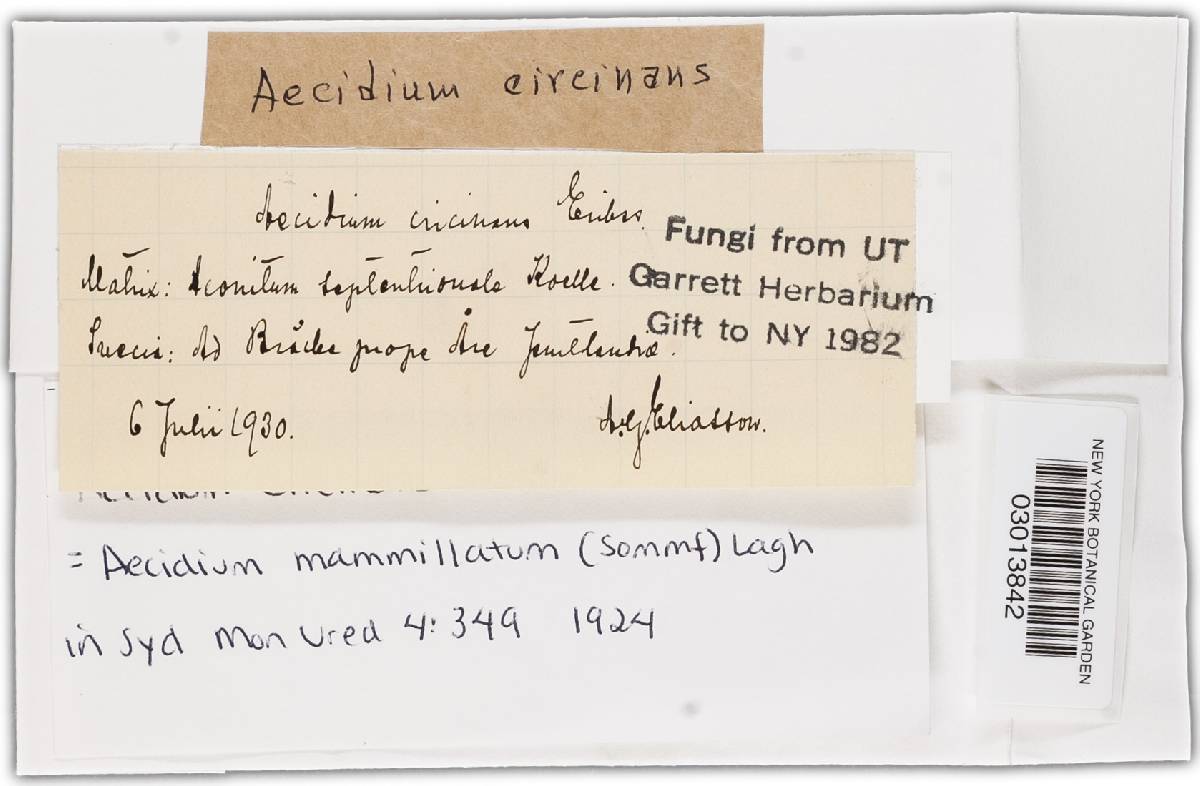 Aecidium circinans
Aecidium circinans Erikss.
Matrix: Aconitum septentrionale Koelle.
Suecia: Ad Bräcke prope Åre Jemtlandiæ.
6 Julii 1930.
A.G. Eliasson.
Fungi from UT
Garrett Herbarium
Gift to NY 1982
= Aecidium mammillatum (Sommf) Lagh
in Syd Mon Ured 4: 349 1924
NEW YORK BOTANICAL GARDEN
03013842